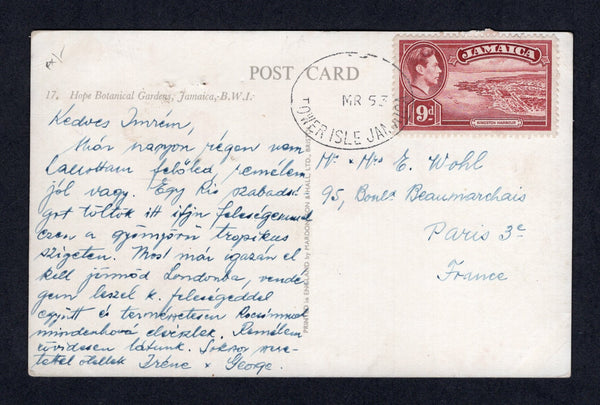 POST CARD
17. Hope Botanical Gardens, Jamaica, B.W.I.
Kedves Imrém,
Már nagyon régen nem
hallottam felőled remélem
jól vagy. Egy kis szabadsá-
got töltök itt ifjú feleségemmel
ezen a gyönyörű tropikus
szigeten. Most már igazán el
kell jönnöd Londonba, vende
gem leszel k. feleségeddel
együtt és természetesen
mindenhová elviszlek. Remélem
rövidesen látunk. Sokszor
ölellek Iréne & George.
PRINTED IN ENGLAND BY MARDON, SON & HALL, LTD.,
JAMAICA
9d
KINGSTON HARBOUR
MR 53
TOWER ISLE JAMAICA
Mr & Mrs E. Wohl
95, Boulv Beaumarchais
Paris 3e
France